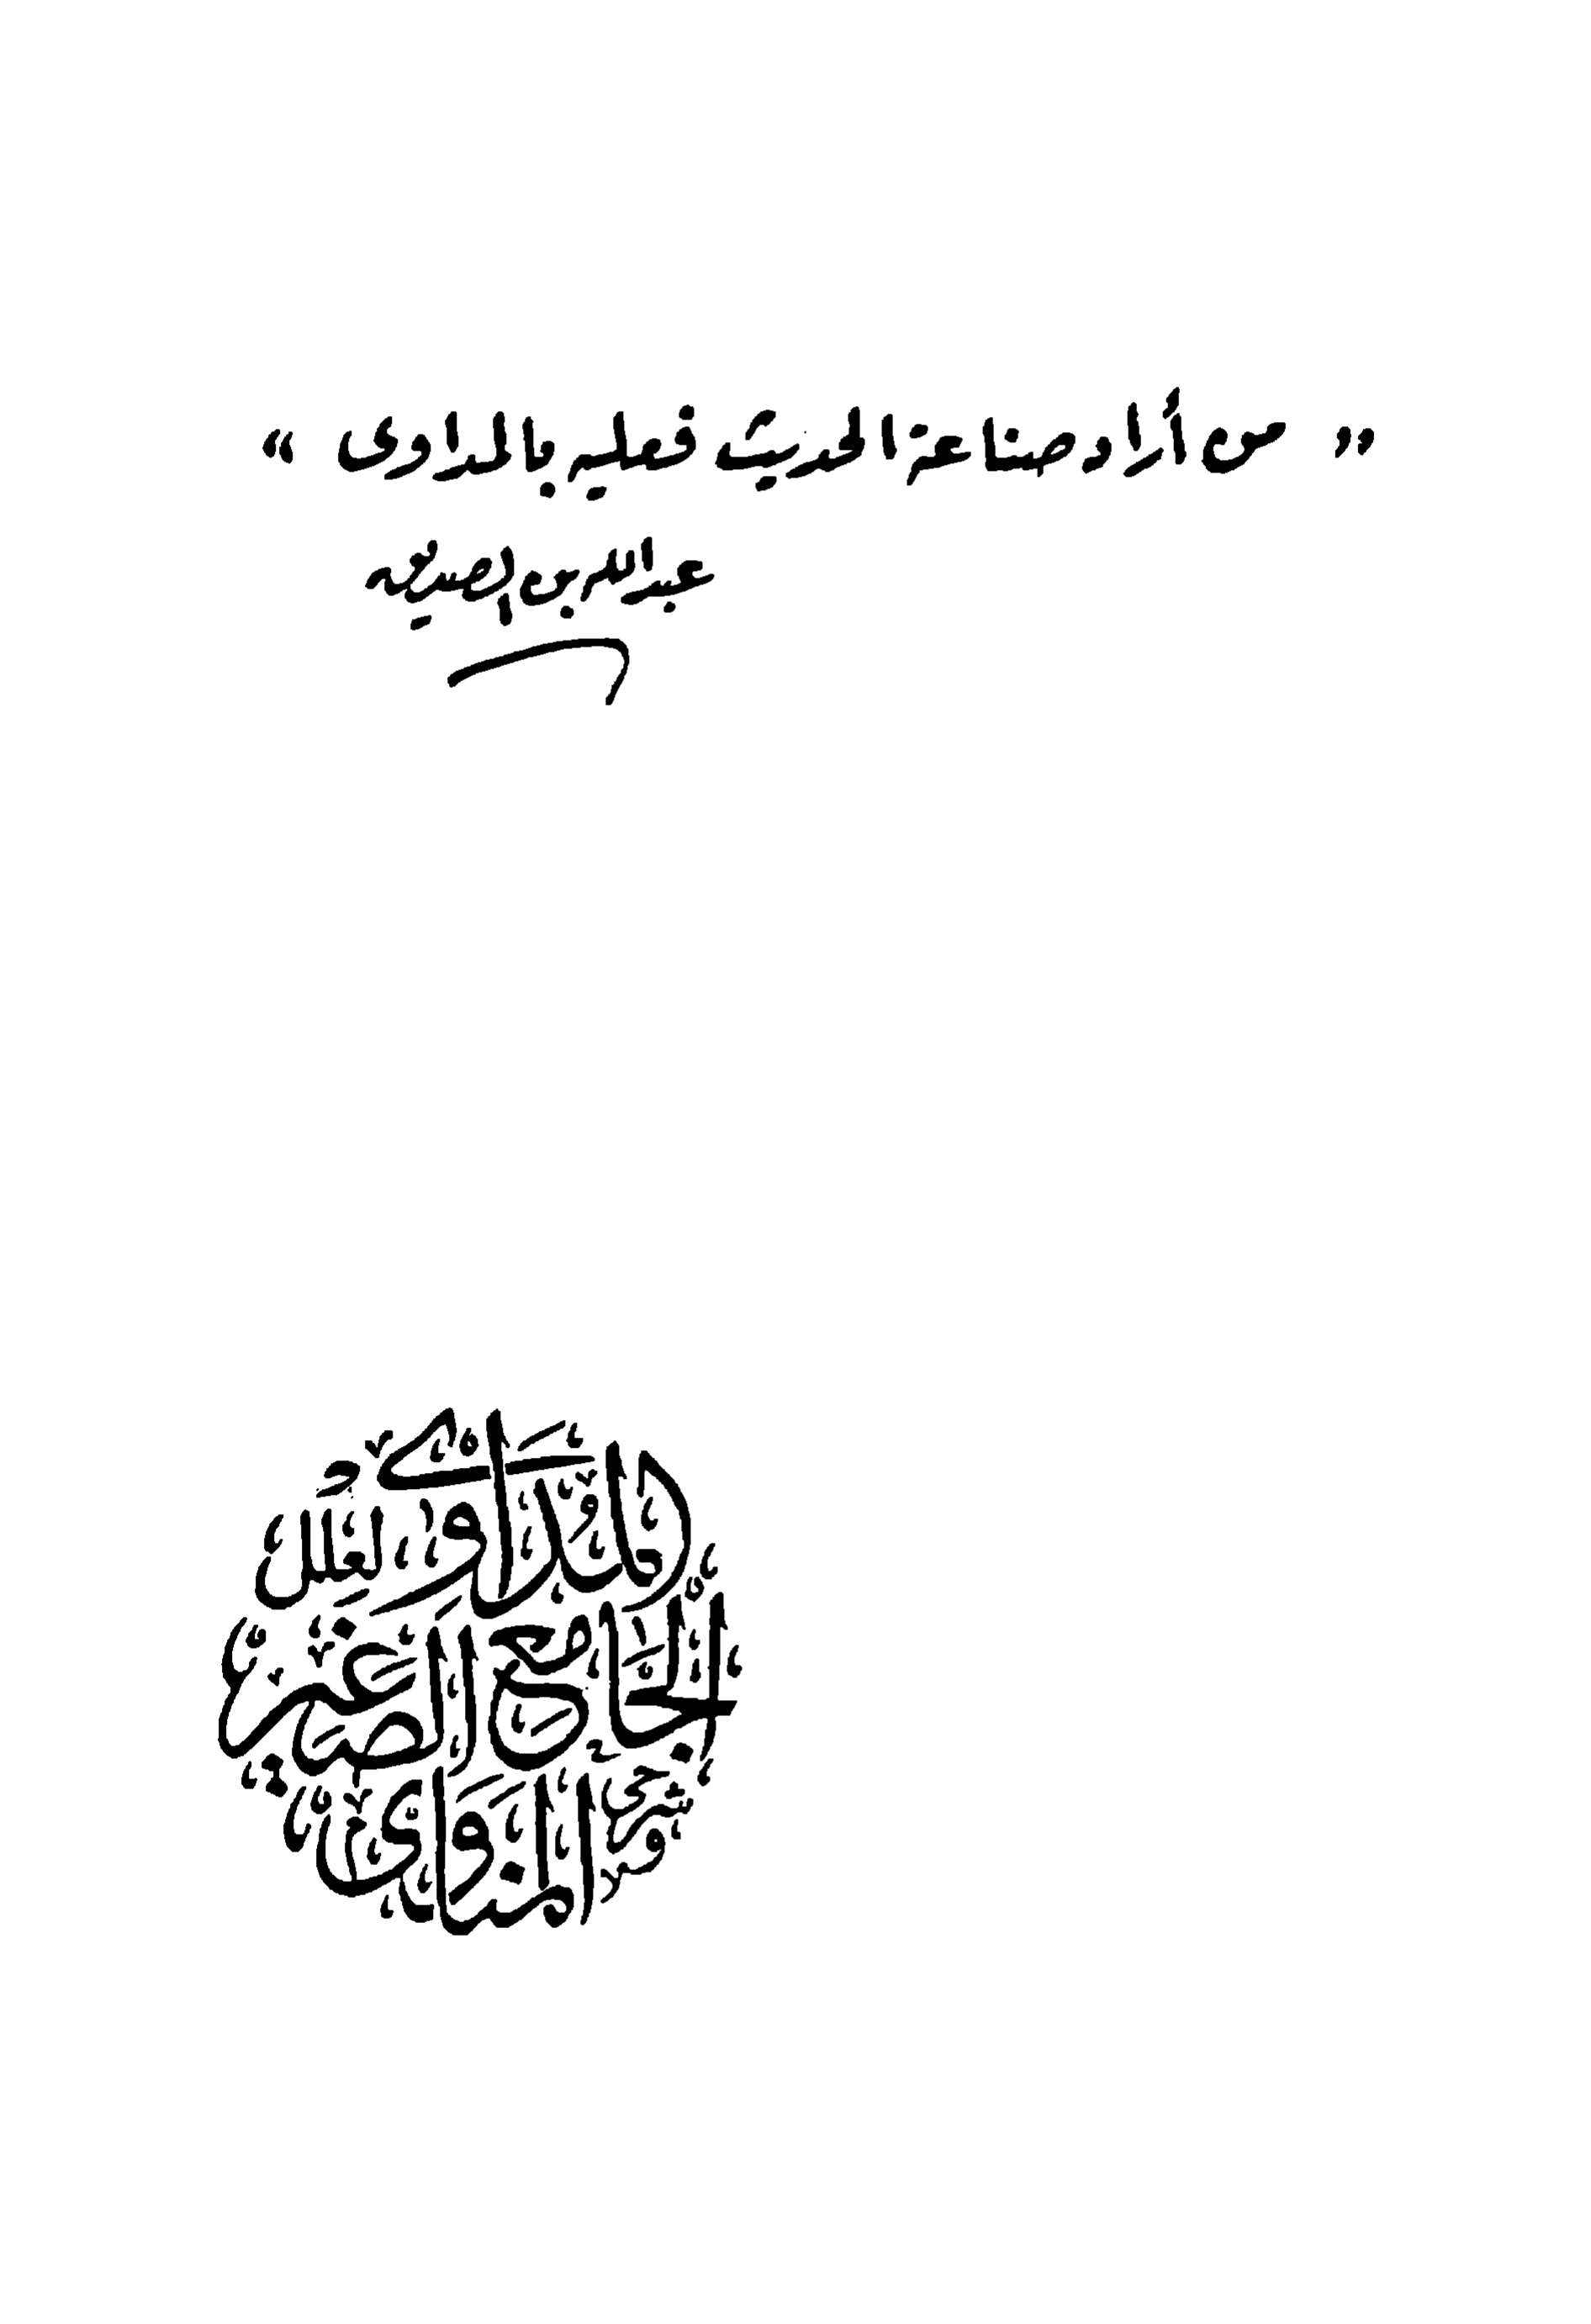 « من أراد صناعة الحديث فعليه بالمداوى »
عبد الله بن الصديق
المداوي لعلل
الجامع الصغير
وشرحي المناوي